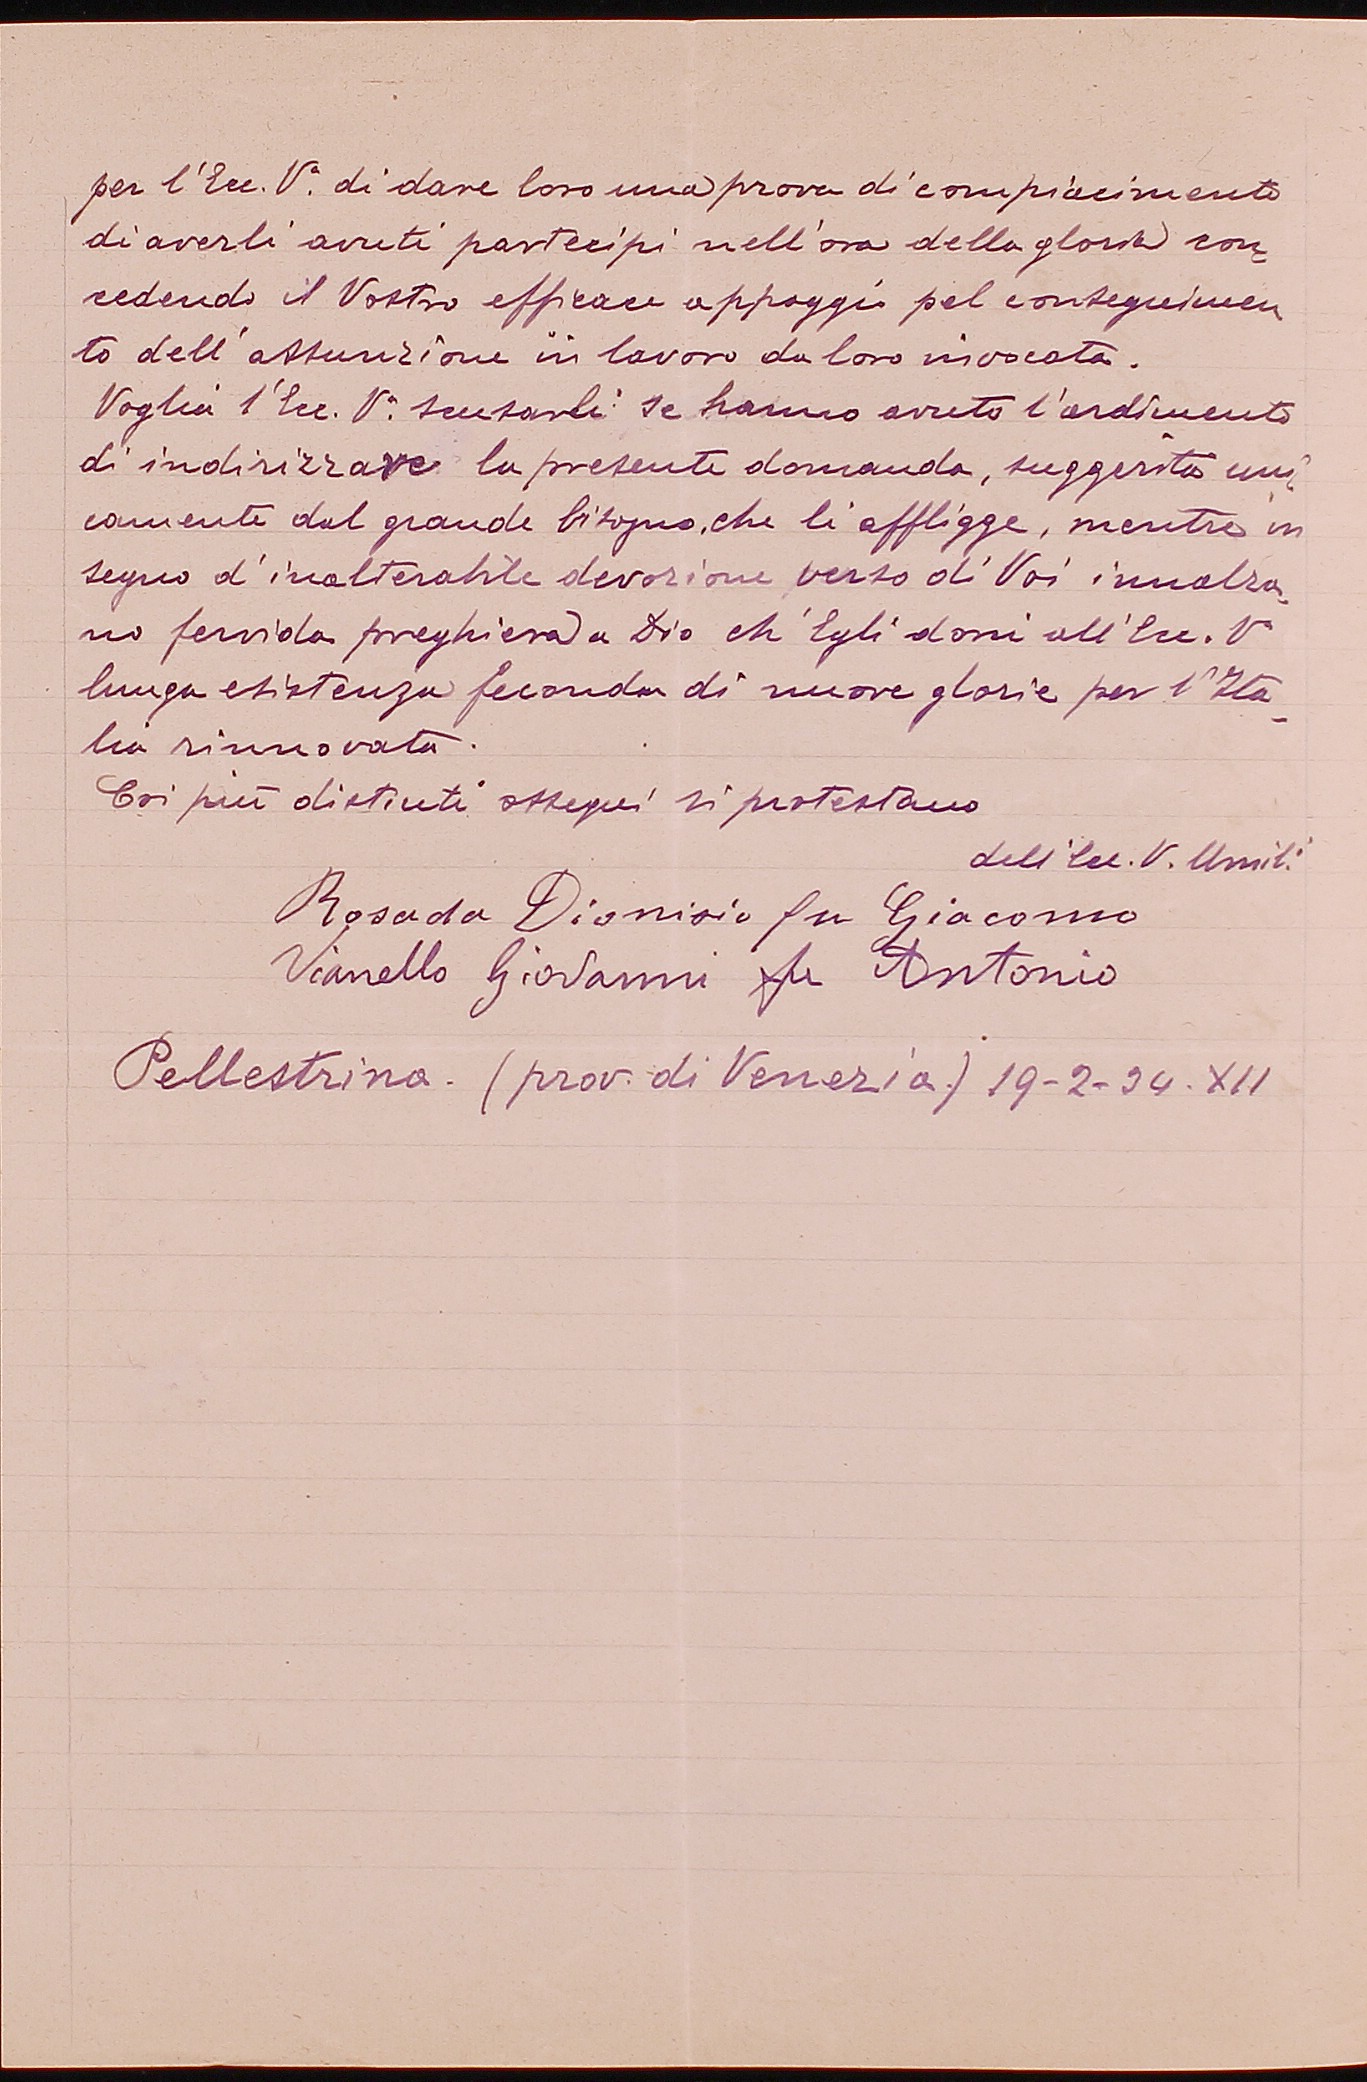 per l'Ecc. Vª. di dare loro una prova di compiacimento
di averli avuti partecipi nell'ora della gloria con=
cedendo il Vostro efficace appoggio pel conseguimen
to dell'assunzione in lavoro da loro invocata.
Voglia l'Ecc. Vª. scusarli se hanno avuto l'ardimento
di indirizzare la presente domanda, suggerita uni=
camente dal grande bisogno, che li affligge, mentre in
segno d'inalterabile devozione verso di Voi innalza-
no fervida preghiera a Dio ch'Egli doni all'Ecc. Vª
lunga esistenza feconda di nuove glorie per l'Ita-
lia rinnovata.
Coi più distinti ossequi si protestano
dell'Ecc. V. Umili
Rosada Dionisio fu Giacomo
Vianello Giovanni fu Antonio
Pellestrina. (prov. di Venezia.) 19-2-34. XII